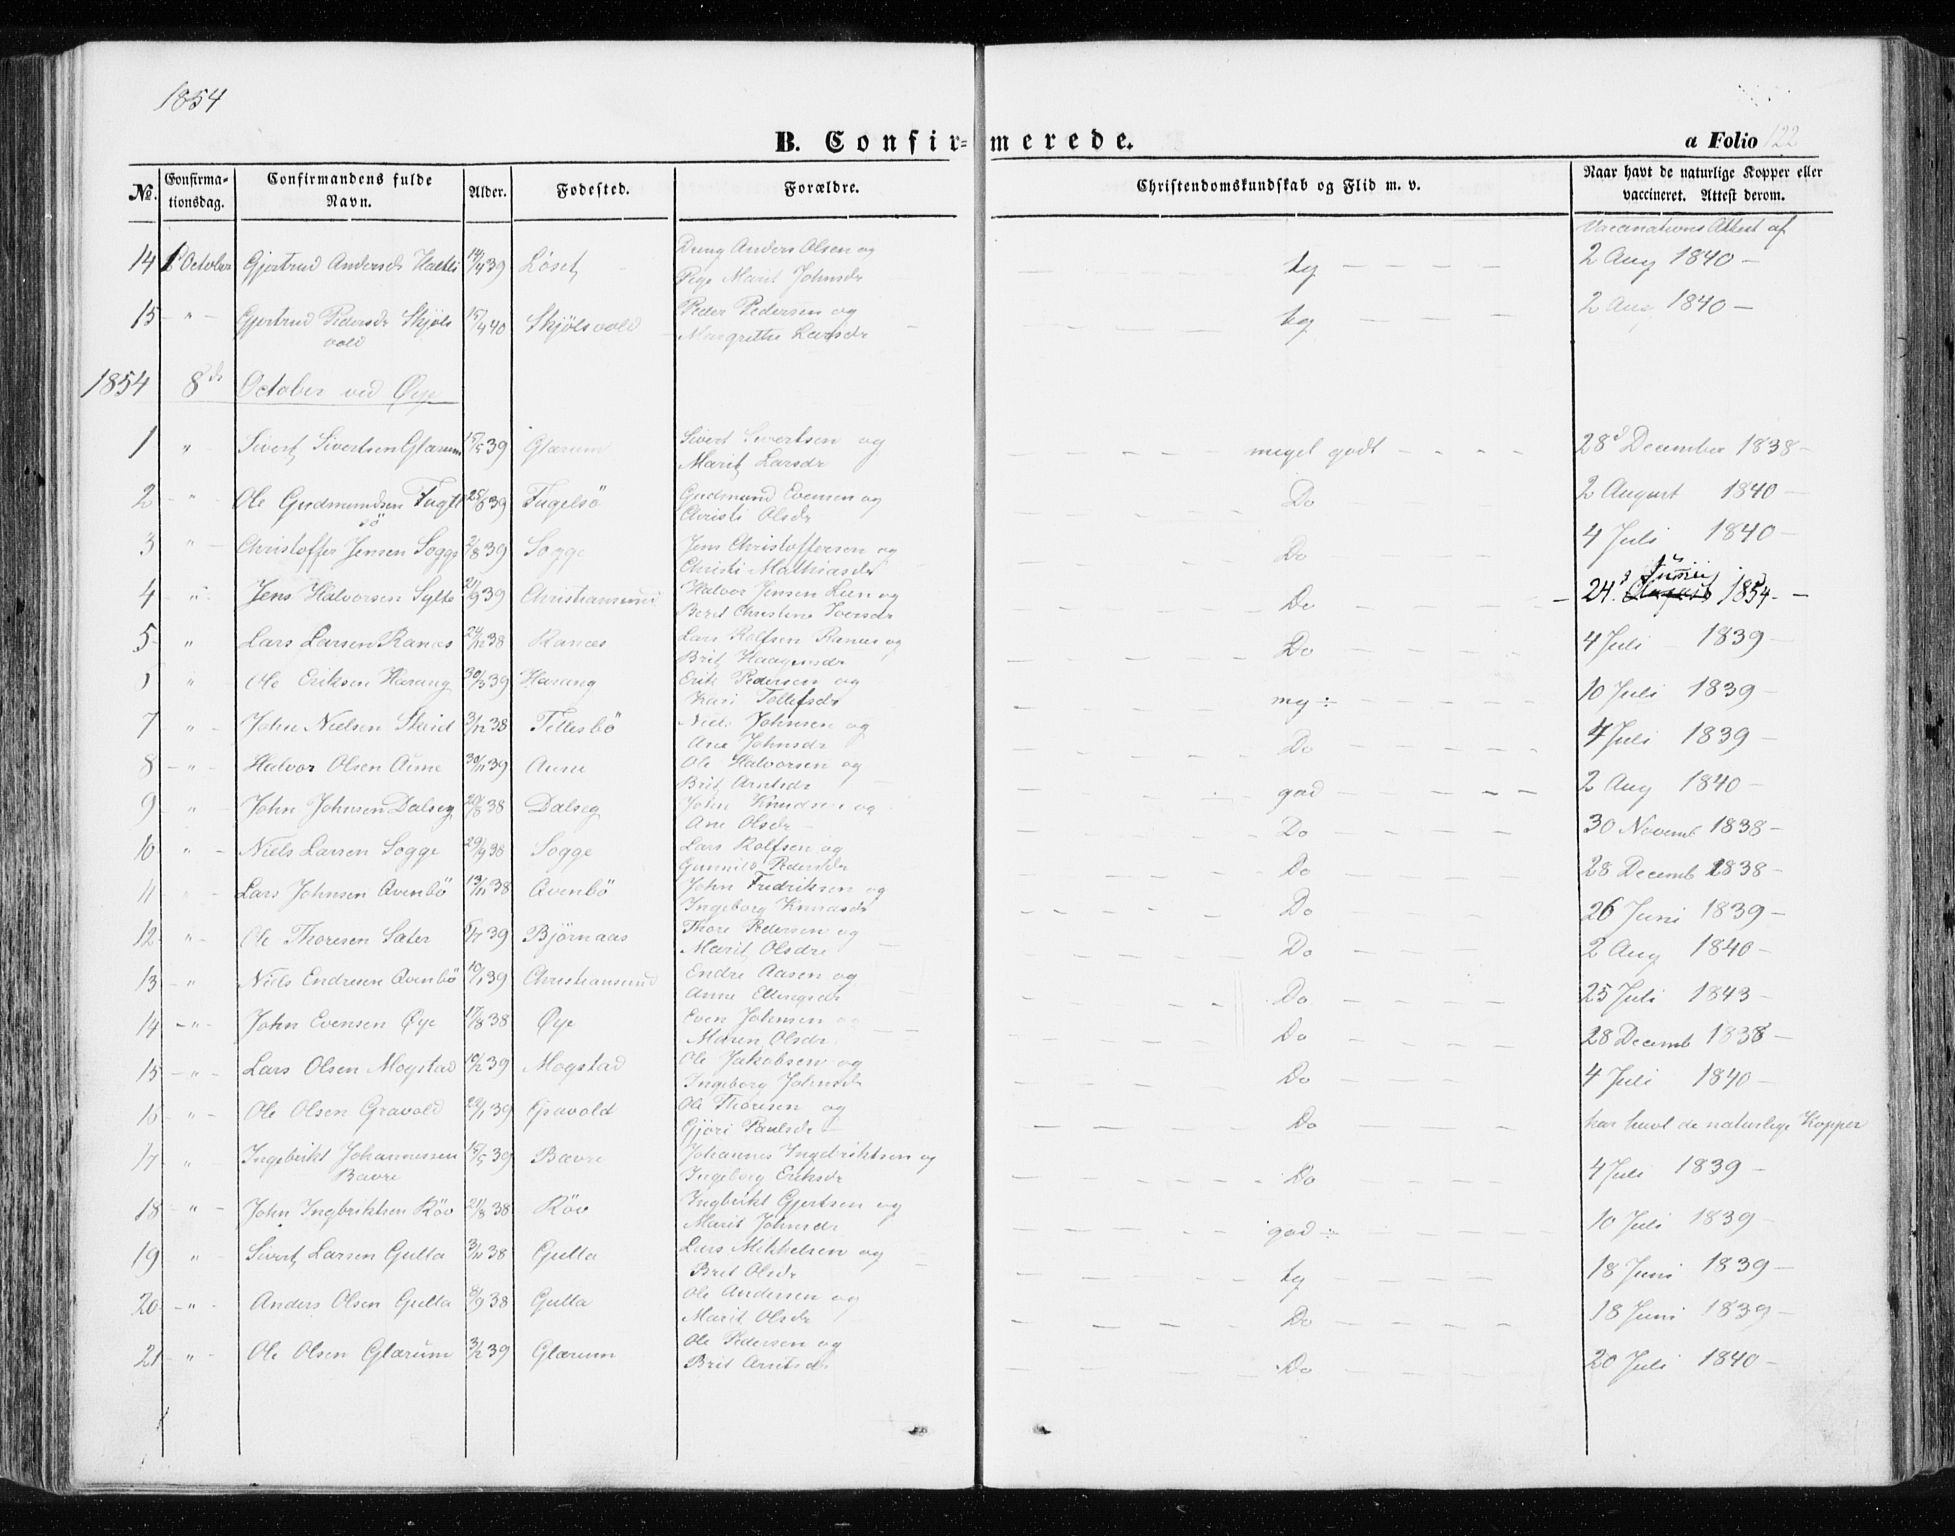 1854
B. Confirmerede.
a Folio 122
№.
Confirmationsdag.
Confirmandens fulde Navn.
Alder.
Fødested.
Forældre.
Christendomskundskab og Flid m. v.
Naar havt de naturlige Kopper eller vaccineret. Attest derom.
Vaccinations Attest af
14 October Gjertrud Andersdr 14/4 39 Löset Dreng Anders Olsen og Pige Marit Johnsdr tg 2 Aug 1840 —
15 " Gjertrud Pedersdr Skjölsvold 15/4 40 Skjölsvold Peder Pedersen og Margrethe Larsdr tg 2 Aug 1840 —
1854 8de October ved Øye
1 " Sivert Sivertsen Glærum 15/5 39 Glærum Sivert Sivertsen og Marit Larsdr meget godt 28d December 1838 —
2 " Ole Gudmundsen Fuglesö 39 Fugelsö Gudmund Evensen og Christi Olsdr Do 2 August 1840 —
3 " Christoffer Jensen Sogge 2/8 39 Sogge Jens Christoffersen og Christi Mathiasdr Do 4 Juli 1840 —
4 " Jens Halvorsen Sylte 21/9 39 Christiansund Halvor Jensen Lien og Berit Christine Iversdr Do 24. Junii 1854. —
5 " Lars Larsen Ranæs 24/12 38 Ranæs Lars Rolfsen Ranæs og Brit Haagensdr Do 4 Juli 1839 —
" Ole Eriksen Harang 30/3 39 Harang Erik Pedersen og Kari Tollefsdr mg ÷ 10 Juli 1839 —
7 " John Nielsen 3/12 38 Tellesbö Niels Johnsen og Ane Johnsdr Do 4 Juli 1839 —
8 " Halvor Olsen Aune 30/11 39 Aune Ole Halvorsen og Brit Arntsdr god 2 Aug 1840 —
9 " John Johnsen Dalseg 20/8 38 Dalseg John Knudsen og Ane Olsdr Do 30 Novemb 1838 —
10 " Niels Larsen Sogge 29/9 38 Sogge Lars Rolfsen og Gunnild Pedersdr Do 28 Decemb 1838 —
11 " Lars Johnsen Qvenbö 13/11 38 Qvenbö John Fredriksen og Ingeborg Knudsdr Do 26 Juni 1839 —
12 " Ole Thoresen Sæter 39 Björnaas Thore Pedersen og Marit Olsdr Do 2 Aug 1840 —
13 " Niels Endresen Qvenbö 10/1 39 Christiansund Endre Aasen og Anne Ellingsdr Do 25 Juli 1843 —
14 " John Evensen Øye 17/8 38 Øye Even Johnsen og Maren Olsdr Do 28 Decemb 1838 —
15 " Lars Olsen Mogstad 10/2 39 Mogstad Ole Jakobsen og Ingeborg Johnsdr Do 4 Juli 1840 —
16 " Ole Olsen Gravold 23/1 39 Gravold Ole Thoresen og Gjöri Paulsdr Do har havt de naturlige Kopper
17 " Ingebrikt Johannessen Bævre 15/5 39 Bævre Johannes Ingebriktsen og Ingeborg Eriksdr Do 4 Juli 1839 —
18 " John Ingbriktsen Röv 21/8 38 Röv Ingbrikt Gjertsen og Marit Johnsdr god ÷ 10 Juli 1839 —
19 " Sivert Larsen Gulla 3/11 38 Gulla Lars Mikkelsen og Brit Olsdr tg 18 Juni 1839 —
20 " Anders Olsen Gulla 8/9 38 Gulla Ole Andersen og Marit Olsdr Do 18 Juni 1839 —
21 " Ole Olsen Glærum 3/2 39 Glærum Ole Pedersen og Brit Arntsdr Do 20 Juli 1840 —